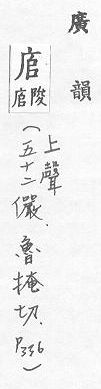 廣韻
（上聲
五十二儼．魯掩切．P336）